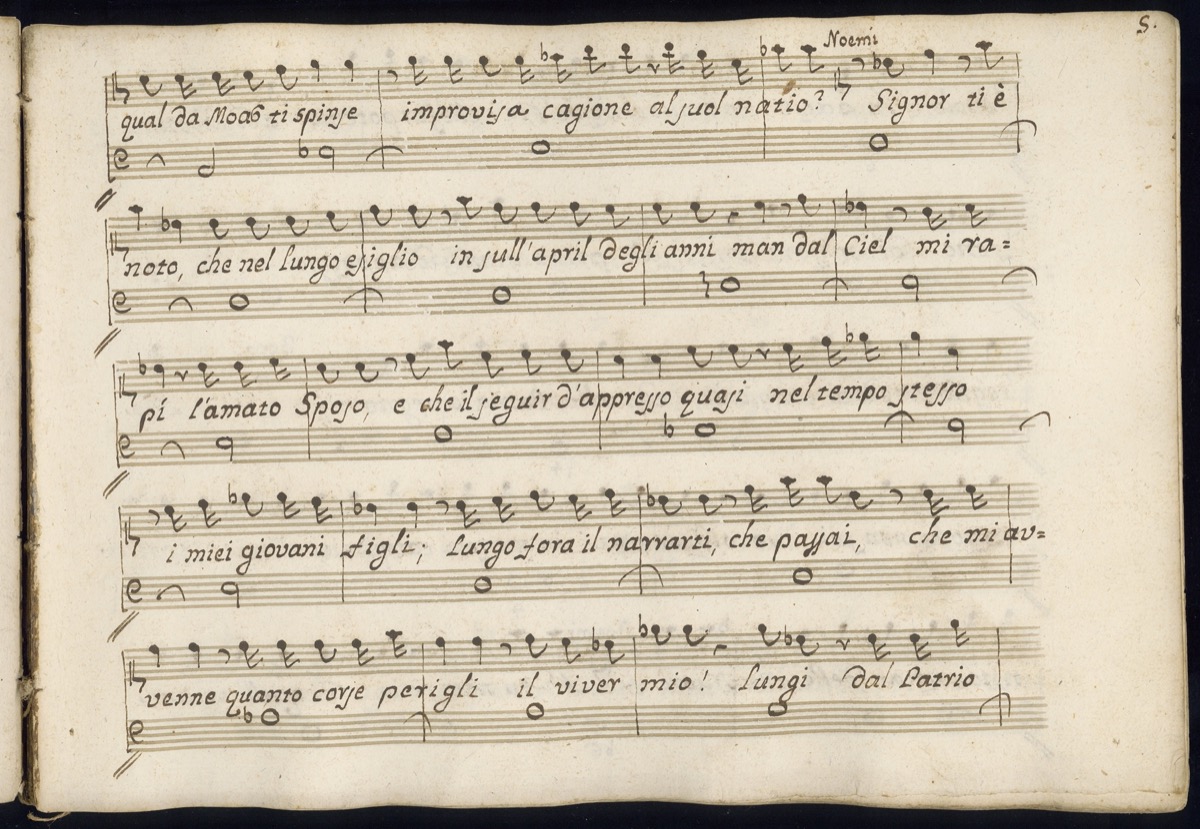 5.
Noemi
qual da Moab ti spinse improvisa cagione al suol natio? Signor ti è
noto, che nel lungo esiglio in sull'april degli anni man dal Ciel mi ra=
pí l'amato Sposo, e che il seguir d'appresso quasi nel tempo stesso
i miei giovani figli; Lungo fora il narrarti, che passai, che mi av=
venne quanto corse perigli il viver mio! Lungi dal Patrio